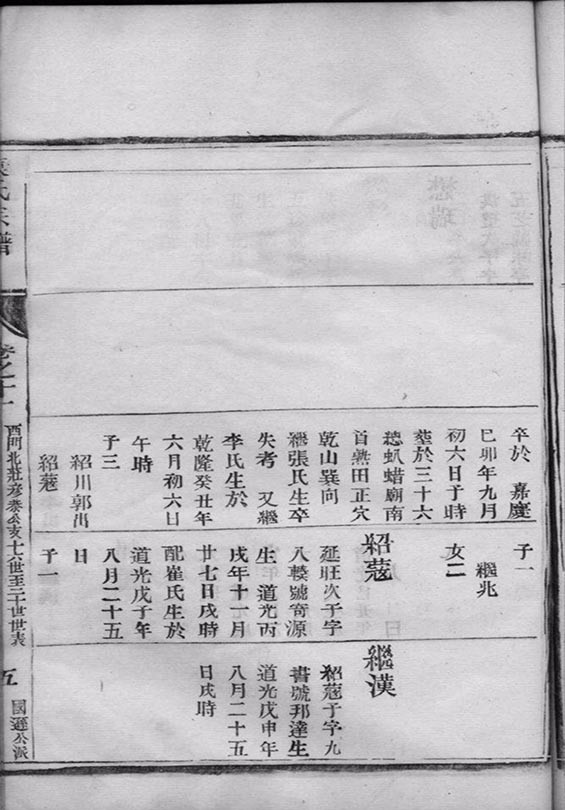 卒於 嘉慶
已卯年九月
初六日子時
塟於三十六
總虮蜡廟南
首熟田正穴
乾山巽向
繼張氏生卒
失考 又繼
李氏生於
乾隆癸丑年
六月初六日
午時
子三
紹川郭出
紹蔻
子一
繼兆
女二
紹蔻
延旺次子字
八輳號奇源
生 道光丙
戌年十一月
廿七日戌時
配崔氏生於
道光戊子年
八月二十五
日
子一
繼漢
紹蔻子字九
書號邦達生
道光戊申年
八月二十五
日戌時
氏宗譜
卷之十一
西門北莊彥泰公支十七世至二十世世表
五
國遜公派